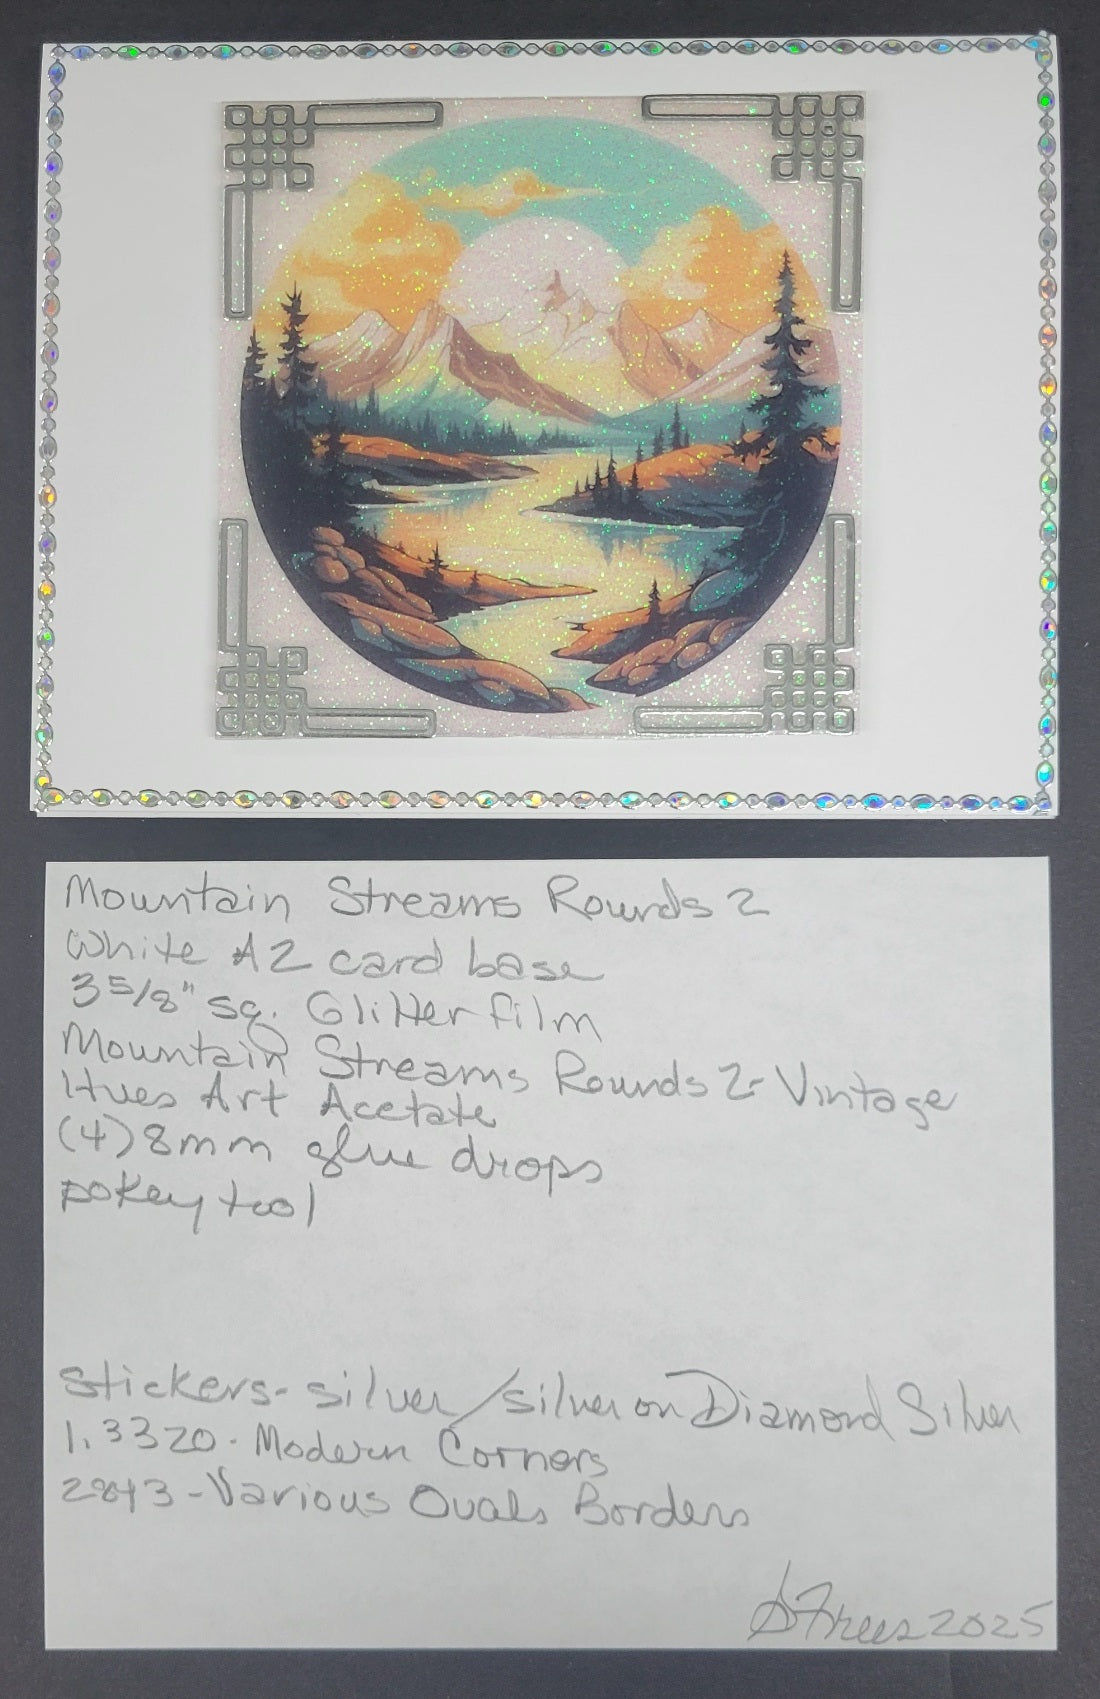 Mountain Streams Rounds 2
White A2 card base
3 5/8" sq. Glitter film
Mountain Streams Rounds 2- Vintage
Hues Art Acetate
(4) 8mm glue drops
pokey tool
Stickers- silver/silver on Diamond Silver
1.3320. Modern Corners
2843 - Various Ovals Borders
SFrees 2025